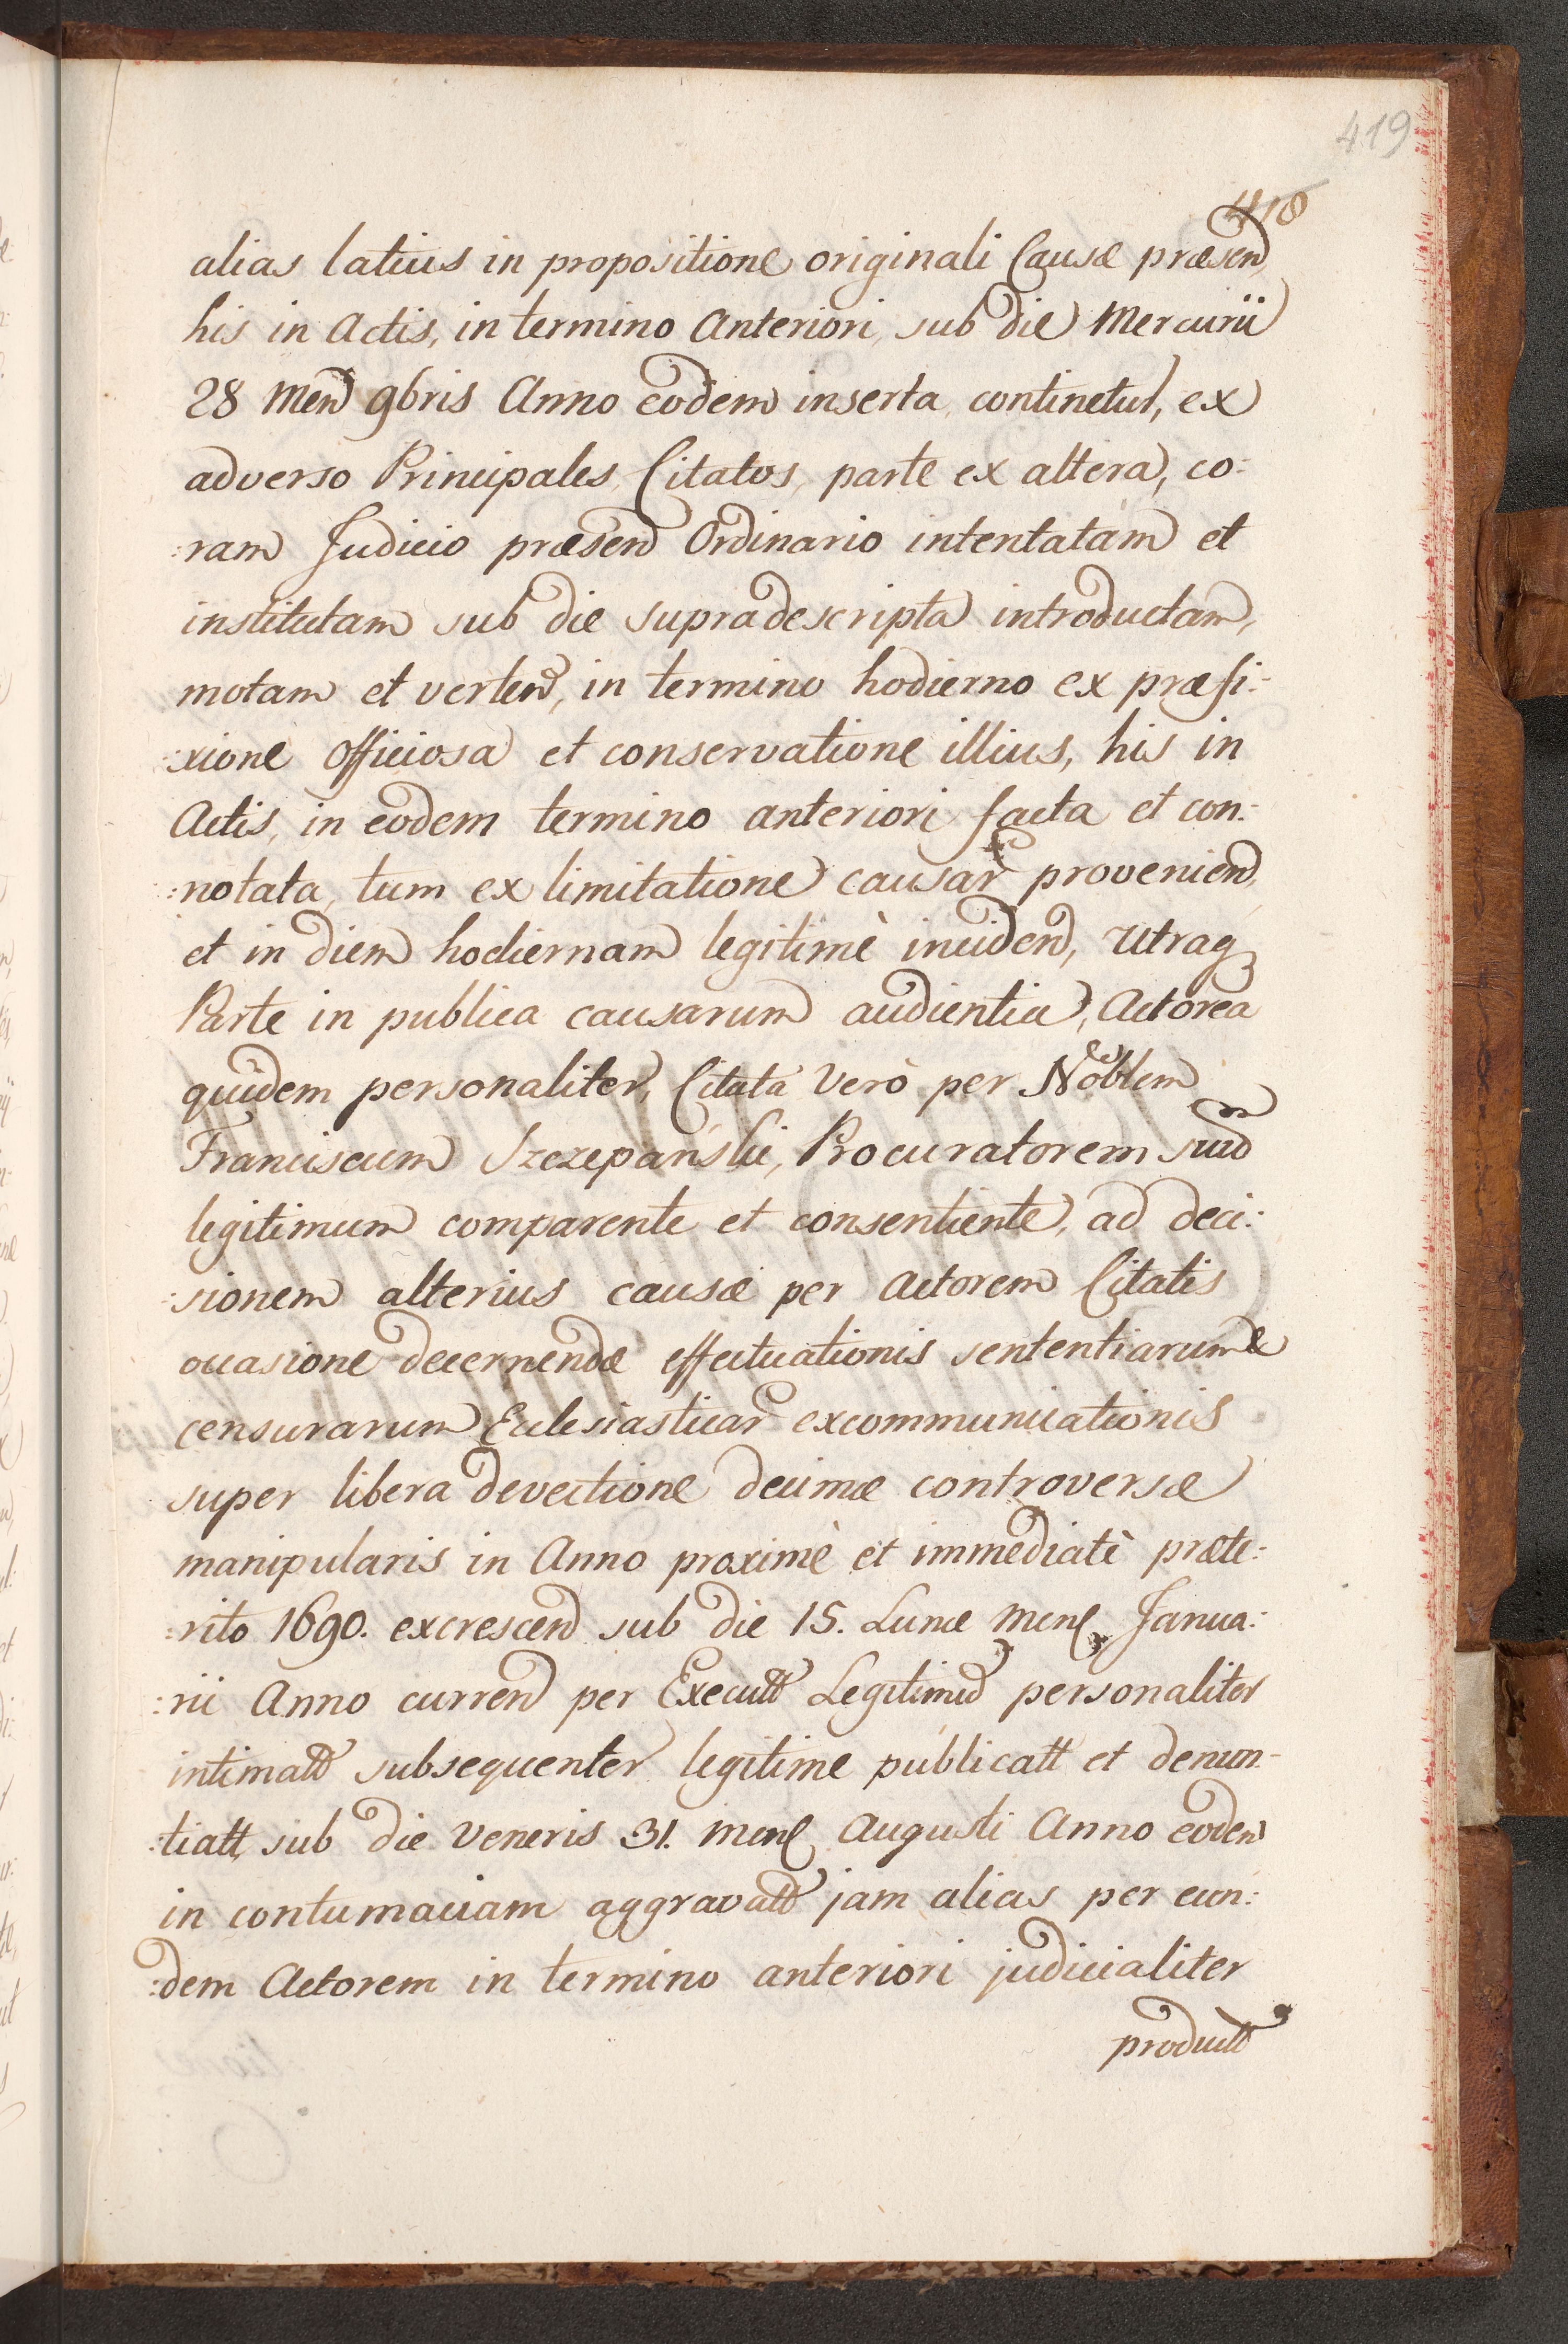 419
418
alias latius in propositione originali Causæ præsen,
his in Actis, in termino Anteriori, sub die Mercurii
28 Men 9bris Anno eodem inserta, continetur, ex
adverso Principales Citatos, parte ex altera, co:
:ram Judicio præsen Ordinario intentatam et
institutam sub die supradescripta introductam,
motam et verten, in termino hodierno ex præfi:
:xione officiosa et conservatione illius, his in
Actis, in eodem termino anteriori facta et con:
:notata, tum ex limitatione causar provenien,
et in diem hodiernam legitimè inciden, Utraq
Parte in publica causarum audientia, Actorea
quidem personaliter, Citata Verò per Noblem
Franciscum Szczepański, Procuratorem suu
legitimum comparente et consentiente, ad deci:
:sionem alterius causæ per Actorem Citatis
occasione decernendæ effectuationis sententiarum &
censurarum Ecclesiasticar excommunicationis
super libera devectione decimæ controversæ
manipularis in Anno proximè et immediatè præte:
:rito 1690. excrescen sub die 15. Lunæ Mens Janua:
:rii Anno curren per Executt Legitimu personaliter
intimatt subsequenter legitime publicatt et denun:
:tiatt, sub die Veneris 31. Mens Augusti Anno eodem
in contumaciam aggravatt jam alias per eun:
:dem Actorem in termino anteriori judicialiter
productt